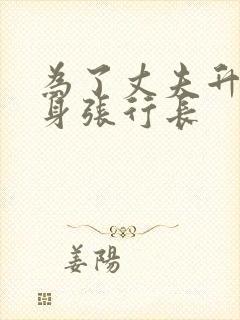 為了丈夫升
身張行長
姜陽